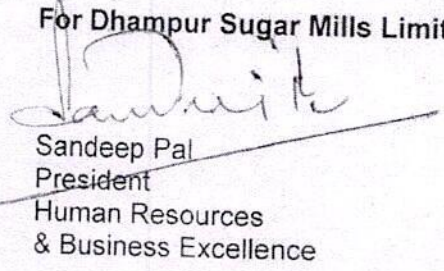 For Dhampur Sugar Mills Limit
Sandeep Pal
President
Human Resources
& Business Excellence